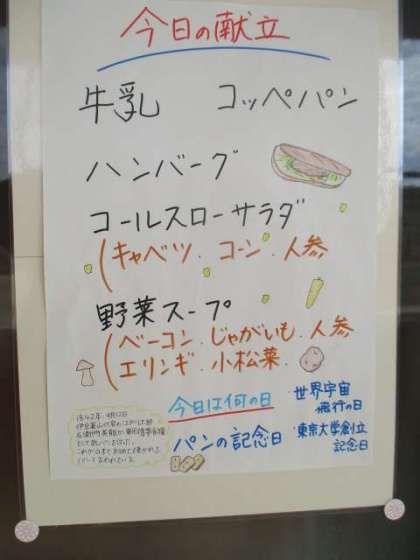 今日の献立
牛乳 コッペパン
ハンバーグ
コールスローサラダ
(キャベツ.コーン.人参
野菜スープ
(ベーコン.じゃがいも.人参
エリンギ.小松菜.
今日は何の日
パンの記念日
世界宇宙
飛行の日
東京大学創立
記念日
1842年、4月12日